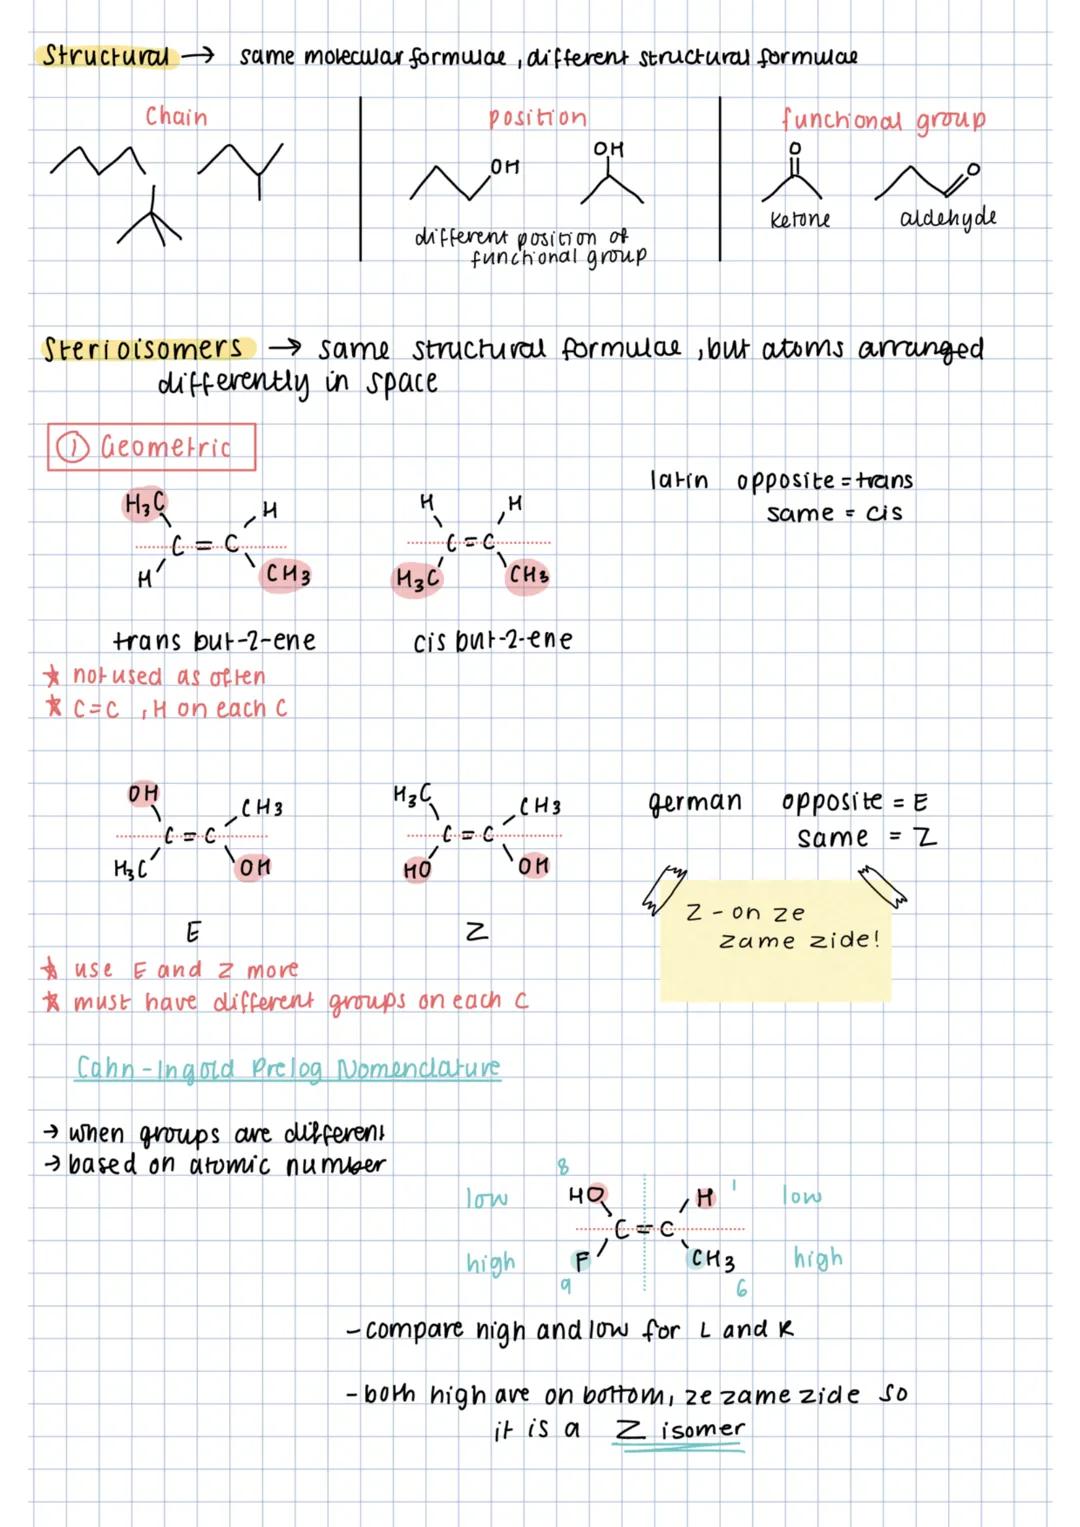 Structural → same molecular formulae, different structural formulae
Chain
position
functional group
OH
OH
O
O
different position of
functional group
Ketone
aldehyde
Sterioisomers → same structural formulae, but atoms arranged
differently in space
① Geometric
latin opposite = trans
same = cis
H3C H
C = C
H CH3
H H
C = C
H3C CH3
trans but-2-ene
cis but-2-ene
☆ not used as often
☆ C=C, H on each C
OH CH3
C = C
H3C OH
H3C CH3
C = C
HO OH
german opposite = E
same = Z
Z - on ze
zame zide!
E
Z
☆ use E and Z more
☆ must have different groups on each C
Cahn-Ingold Prelog Nomenclature
→ when groups are different
→ based on atomic number
8
low HO H 1 low
C = C
high F CH3 high
9 6
- compare high and low for L and R
- both high are on bottom, ze zame zide so
it is a Z isomer